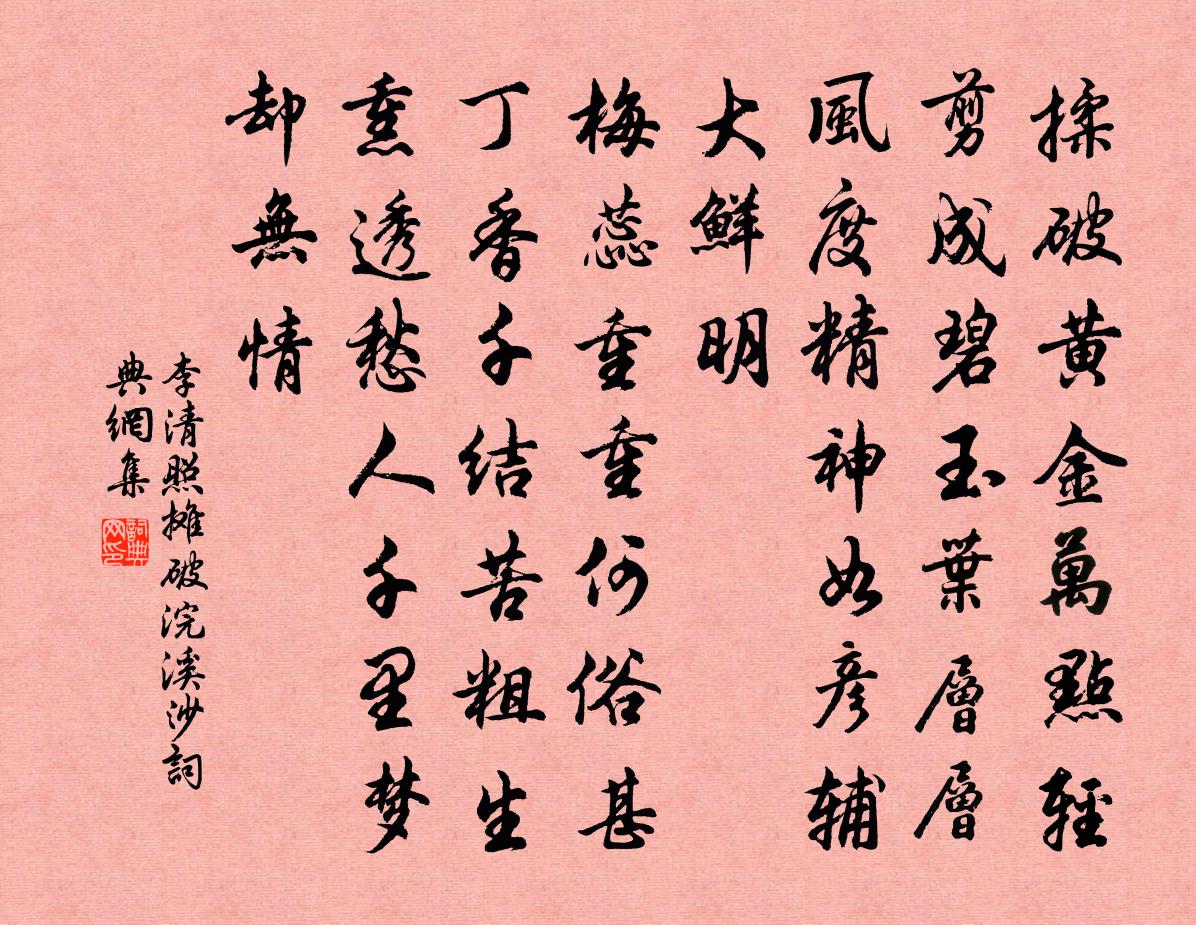 揉破黄金萬點輕
剪成碧玉葉層層
風度精神如彦辅
大鮮明
梅蕊重重何俗甚
丁香千结苦粗生
熏透愁人千里梦
却無情
李清照摊破浣溪沙詞
典網集
詞典网印